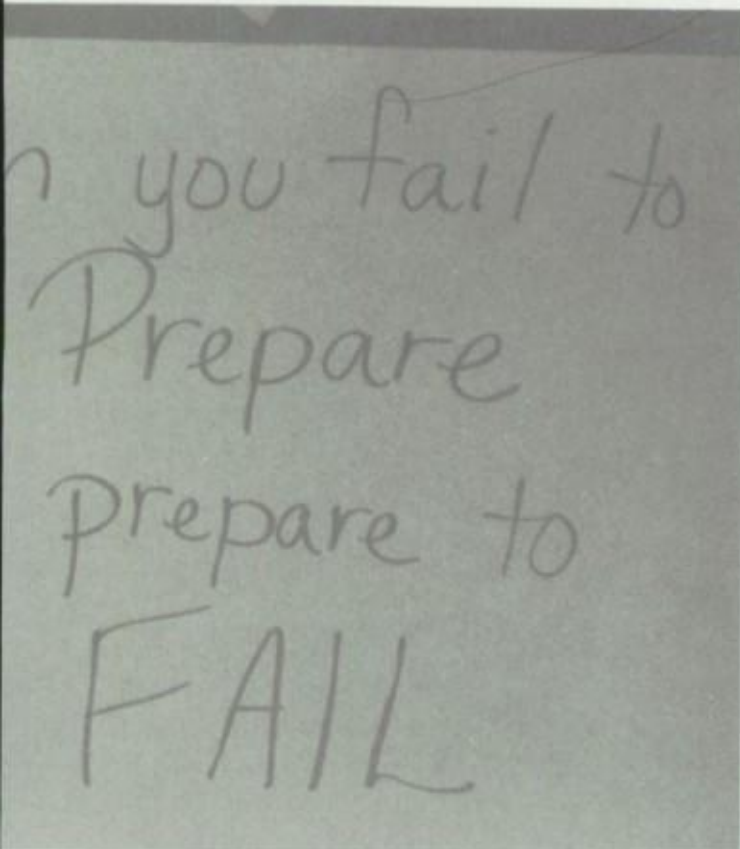 n you fail to
Prepare
prepare to
FAIL